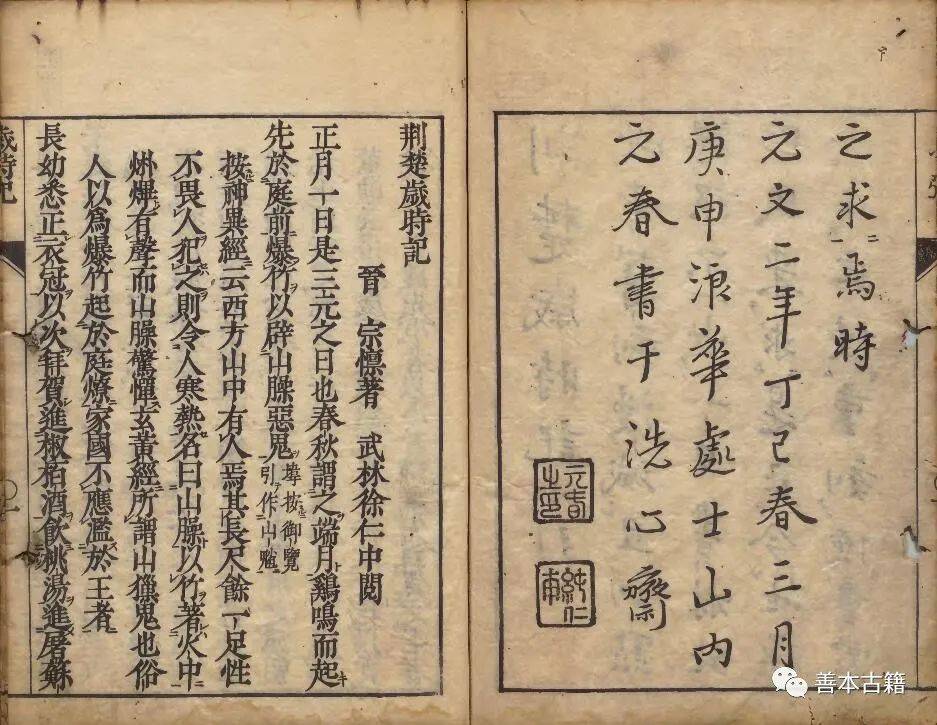 之求焉時
元文二年丁巳春三月
庚申浪華處士山内
元春書于洗心齋
元春之印
荆楚歲時記
晉 宗懍著 武林徐仁中閱
正月一日是三元之日也春秋謂之端月鷄鳴而起
先於庭前爆竹以辟山臊惡鬼
按御覽
引作山魈
按神異經云西方山中有人焉其長尺餘一足性
不畏人犯之則令人寒熱名曰山臊以竹著火中
烞熚有聲而山臊驚憚玄黃經所謂山獵鬼也俗
人以爲爆竹起於庭燎家國不應濫於王者
長幼悉正衣冠以次拜賀進椒柏酒飲桃湯進屠蘇
歲時記
善本古籍